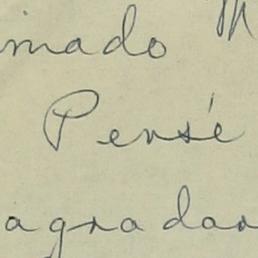 imado M
Pensé
agradar